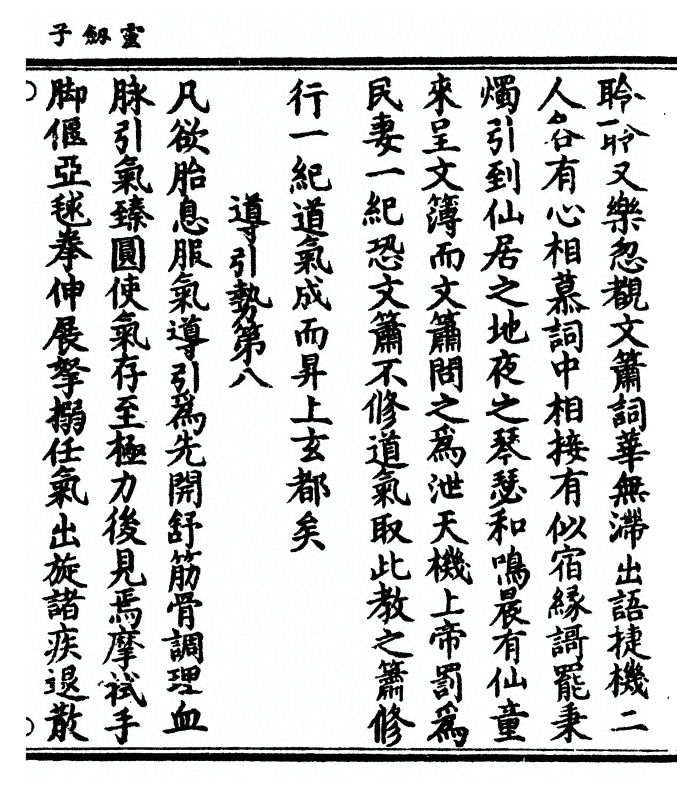 靈劔子
聆聆又樂忽覩文簫詞華無滯出語捷機二
人各有心相慕詞中相接有似宿緣謌罷秉
燭引到仙居之地夜之琴瑟和鳴晨有仙童
來呈文簿而文簫問之爲泄天機上帝罰爲
民妻一紀恐文簫不修道氣取此教之簫修
行一紀道氣成而昇上玄都矣
導引勢第八
凡欲胎息服氣導引爲先開舒筋骨調理血
脉引氣臻圓使氣存至極力後見焉摩拭手
脚偃亞毬拳伸展拏搦任氣出旋諸疾退散